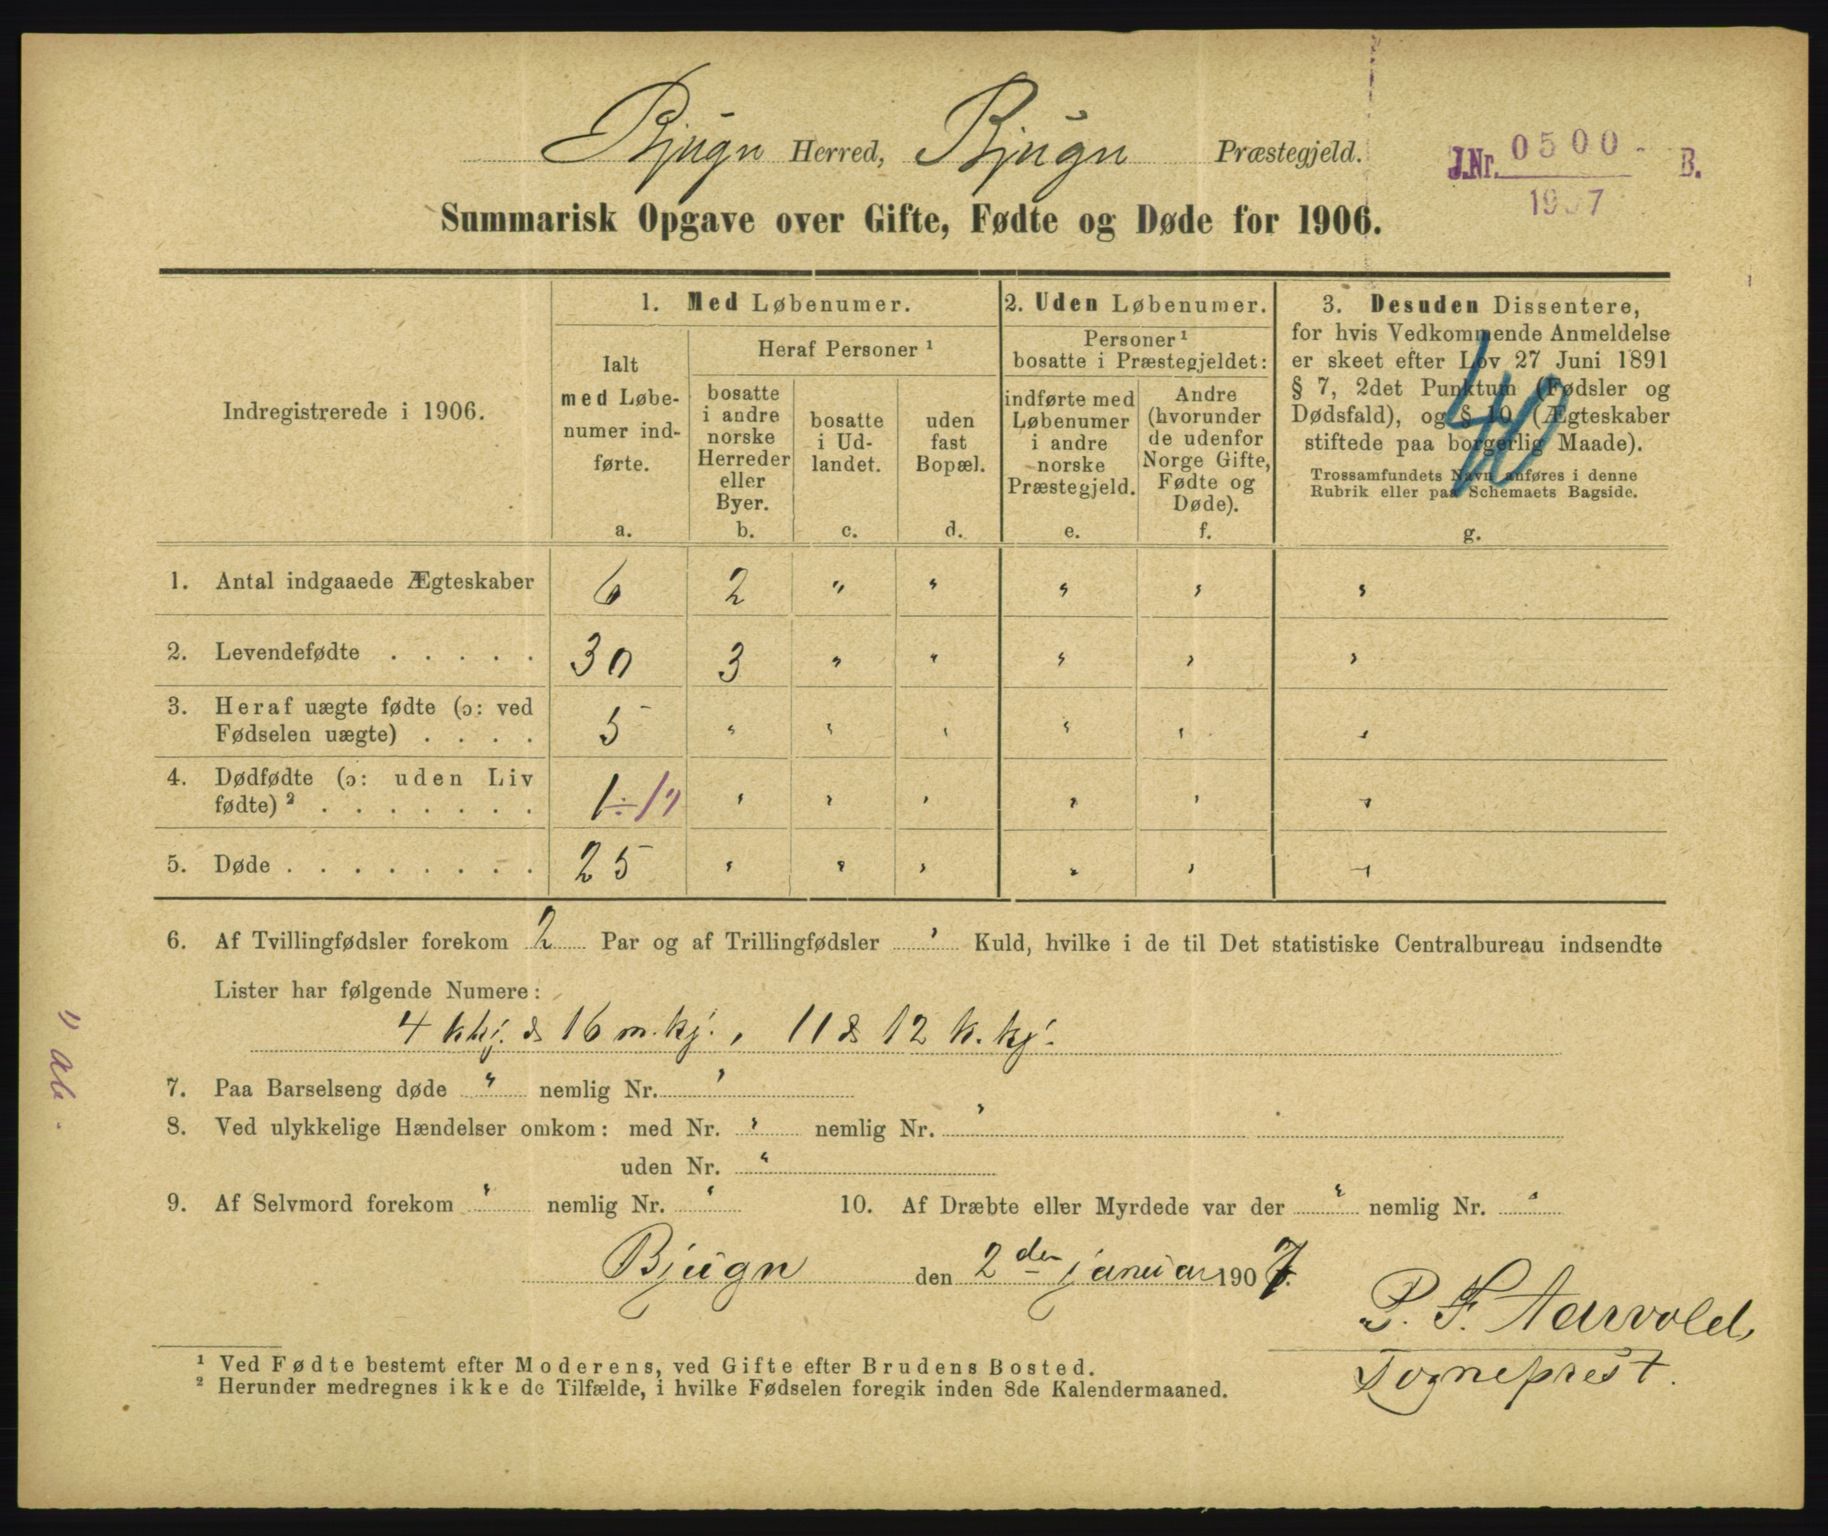 Bjugn Herred, Bjugn Præstegjeld.
J.Nr. 0500 B.
1907
Summarisk Opgave over Gifte, Fødte og Døde for 1906.
Indregistrerede i 1906.
1. Med Løbenumer.
Ialt
med Løbe-
numer ind-
førte.
a.
Heraf Personer ¹
bosatte
i andre
norske
Herreder
eller
Byer.
b.
bosatte
i Ud-
landet.
c.
uden
fast
Bopæl.
d.
2. Uden Løbenumer.
Personer ¹
bosatte i Præstegjeldet:
indførte med
Løbenumer
i andre
norske
Præstegjeld.
e.
Andre
(hvorunder
de udenfor
Norge Gifte,
Fødte og
Døde).
f.
3. Desuden Dissentere,
for hvis Vedkommende Anmeldelse
er skeet efter Lov 27 Juni 1891
§ 7, 2det Punktum (Fødsler og
Dødsfald), og § 10 (Ægteskaber
stiftede paa borgerlig Maade).
Trossamfundets Navn anføres i denne
Rubrik eller paa Schemaets Bagside.
g.
1. Antal indgaaede Ægteskaber 6 2 " " " " "
2. Levendefødte . . . . . 30 3 " " " " "
3. Heraf uægte fødte (ɔ: ved
Fødselen uægte) . . . . 5 " " " " " "
4. Dødfødte (ɔ: uden Liv
fødte) ² . . . . . . . 1 ÷ 1 " " " " " " "
5. Døde . . . . . . . . 25 " " " " " "
6. Af Tvillingfødsler forekom 2 Par og af Trillingfødsler " Kuld, hvilke i de til Det statistiske Centralbureau indsendte
Lister har følgende Numere:
4 kkj. & 16 m.kj., 11 & 12 k.kj.
7. Paa Barselseng døde " nemlig Nr. "
8. Ved ulykkelige Hændelser omkom: med Nr. " nemlig Nr. "
uden Nr. "
9. Af Selvmord forekom " nemlig Nr. " 10. Af Dræbte eller Myrdede var der " nemlig Nr. "
Bjugn den 2den januar 1907.
P. F. Aarvold
Sogneprest.
¹ Ved Fødte bestemt efter Moderens, ved Gifte efter Brudens Bosted.
² Herunder medregnes ikke de Tilfælde, i hvilke Fødselen foregik inden 8de Kalendermaaned.